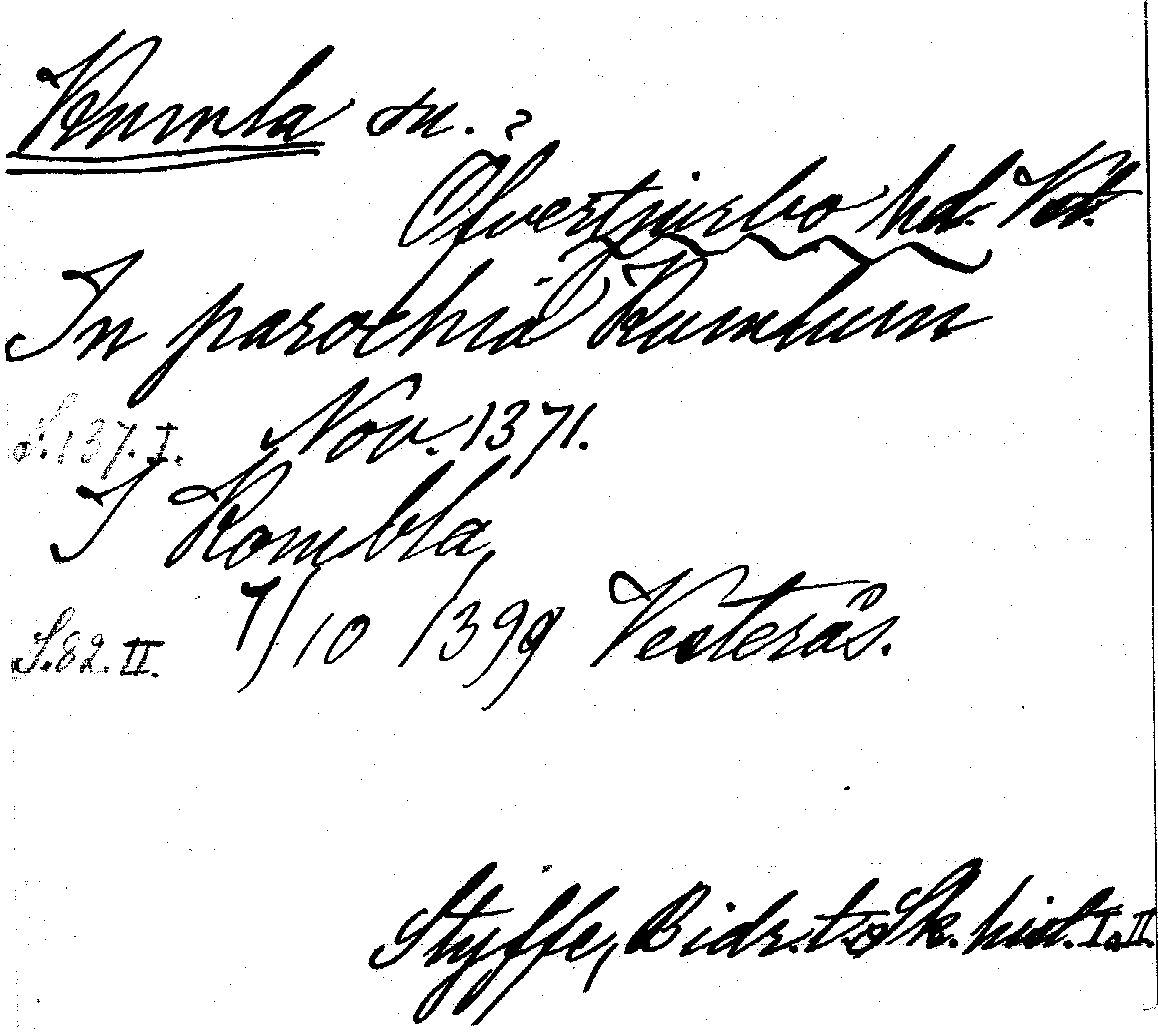 Kumla sn. ?
Öfvertjurbo hd. Vst.
In parochia Kumlum
S. 137. I. Nov. 1371.
I Kombla,
S. 82. II. 7/10 1399 Vesterås.
Styffe, Bidr. t. Sk. hist. I. II.